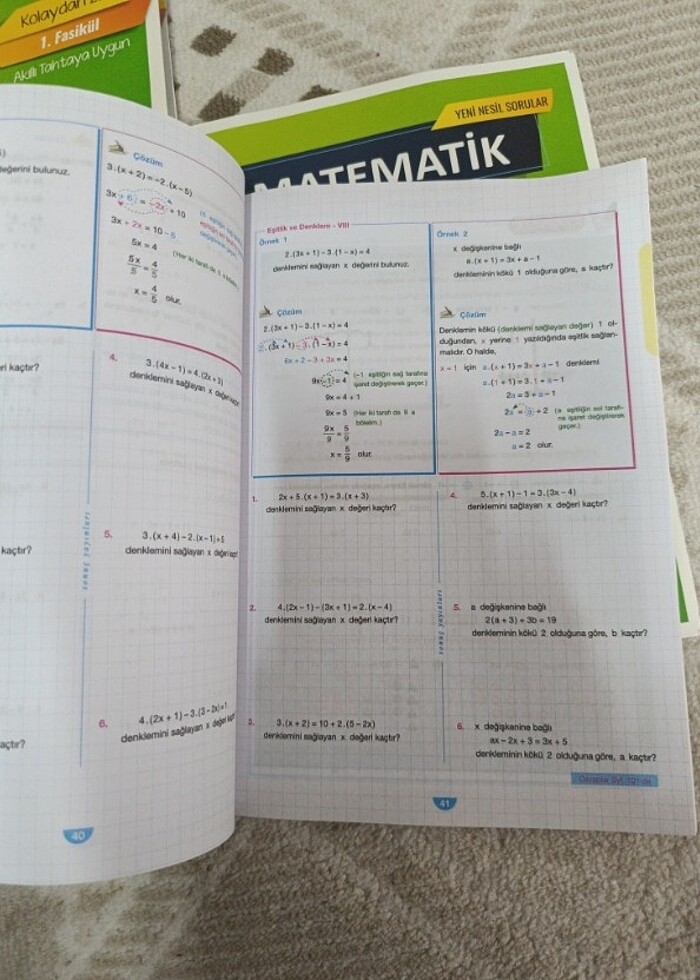 Kolaydan
1. Fasikül
Akıllı Tahtaya Uygun
YENİ NESİL SORULAR
MATEMATİK
değerini bulunuz.
Çözüm
3.(x + 2) = -2.(x - 5)
3x + 6 = -2x + 10
3x + 2x = 10 - 6
5x = 4
5x/5 = 4/5
x = 4/5 olur.
kaçtır?
4. 3.(4x - 1) = 4.(2x + 3)
denklemini sağlayan x değeri kaçtır
5. 3.(x + 4) - 2.(x - 1) = 5
denklemini sağlayan x değeri kaçtır
kaçtır?
6. 4.(2x + 1) - 3.(3 - 2x) = 1
denklemini sağlayan x değeri kaçtır
açtır?
sonuç yayınları
40
Eşitlik ve Denklem - VIII
Örnek 1
2.(3x + 1) - 3.(1 - x) = 4
denklemini sağlayan x değerini bulunuz.
Çözüm
2.(3x + 1) - 3.(1 - x) = 4
2.(3x + 1) - 3.(1 - x) = 4
6x + 2 - 3 + 3x = 4
9x - 1 = 4 (-1 eşitliğin sağ tarafına
işaret değiştirerek geçer.)
9x = 4 + 1
9x = 5 (Her iki tarafı da 9 a
bölelim.)
9x/9 = 5/9
x = 5/9 olur.
Örnek 2
x değişkenine bağlı
a.(x + 1) = 3x + a - 1
denkleminin kökü 1 olduğuna göre, a kaçtır?
Çözüm
Denklemin kökü (denklemi sağlayan değer) 1 ol-
duğundan, x yerine 1 yazıldığında eşitlik sağlan-
malıdır. O halde,
x = 1 için a.(x + 1) = 3x + a - 1 denklemi
a.(1 + 1) = 3.1 + a - 1
2a = 3 + a - 1
2a = a + 2 (a eşitliğin sol tarafı-
na işaret değiştirerek
geçer.)
2a - a = 2
a = 2 olur.
1. 2x + 5.(x + 1) = 3.(x + 3)
denklemini sağlayan x değeri kaçtır?
2. 4.(2x - 1) - (3x + 1) = 2.(x - 4)
denklemini sağlayan x değeri kaçtır?
3. 3.(x + 2) = 10 + 2.(5 - 2x)
denklemini sağlayan x değeri kaçtır?
sonuç yayınları
4. 5.(x + 1) - 1 = 3.(3x - 4)
denklemini sağlayan x değeri kaçtır?
5. a değişkenine bağlı
2(a + 3) + 3b = 19
denkleminin kökü 2 olduğuna göre, b kaçtır?
6. x değişkenine bağlı
ax - 2x + 3 = 3x + 5
denkleminin kökü 2 olduğuna göre, a kaçtır?
41